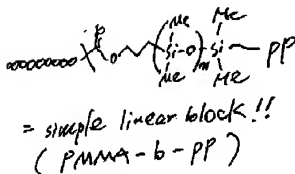 Me Me
O
O Si-O Si PP
m
Me Me
= simple linear block!!
(PMMA-b-PP)